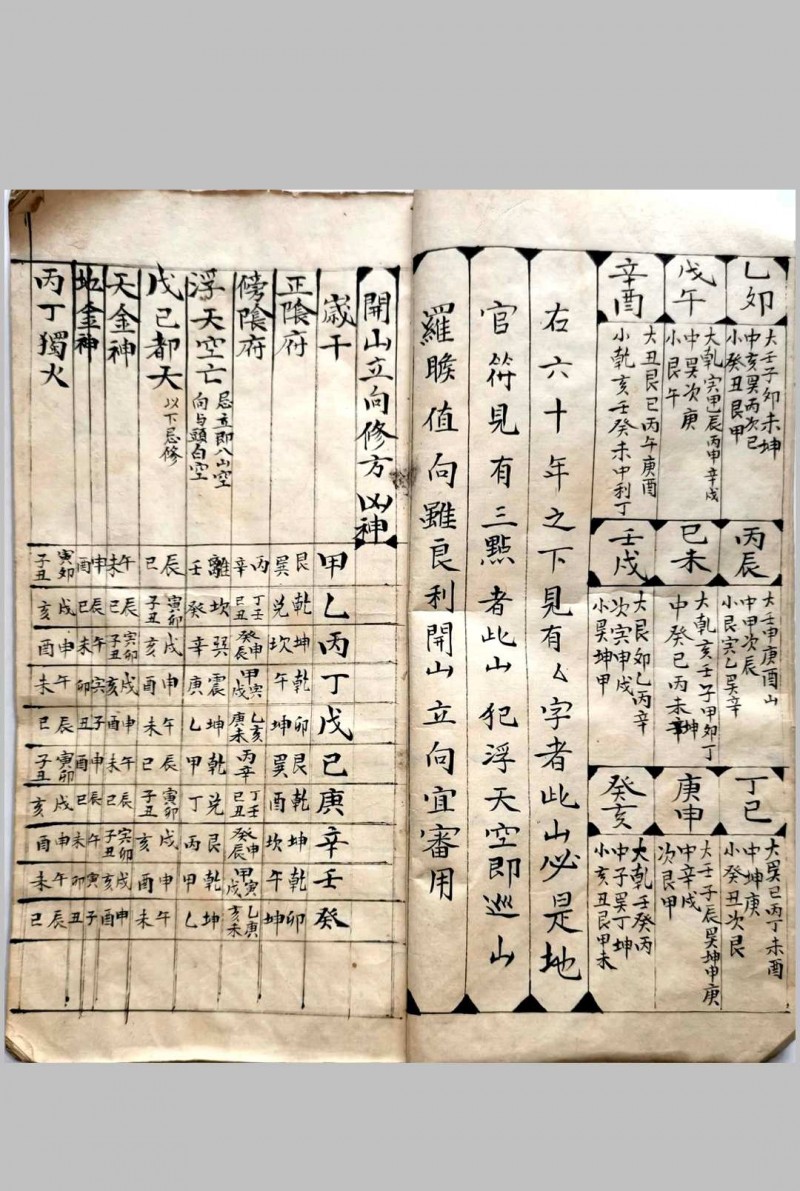 乙卯
大壬子卯未坤
中亥巽丙次巳
小癸丑艮甲
丙辰
大壬申庚酉山
中甲次辰
小艮寅乙巽辛
丁巳
大巽巳丙丁未酉
中坤庚
小癸丑次艮
戊午
大乾寅甲巳辰丙申辛戌
中巽次庚
小艮午
己未
大乾亥壬子甲卯丁
中癸巳丙未辛坤
庚申
大壬子辰巽坤申庚
中辛戌
次艮甲
辛酉
大丑艮巳丙午庚酉
小乾亥壬癸未中利丁
壬戌
大艮卯乙丙辛
次寅申戌
小巽坤甲
癸亥
大乾壬癸丙
中子巽丁坤
小亥丑艮甲未
右六十年之下見有厶字者此山必是地
官符見有三點者此山犯浮天空即巡山
羅睺值向雖良利開山立向宜審用
開山立向修方凶神
歲干 甲 乙 丙 丁 戊 己 庚 辛 壬 癸
正陰府 艮巽 乾兌 坤坎 乾午 卯坤 艮巽 乾酉 坤坎 乾午 卯坤
傍陰府 丙辛 丁壬巳丑 申癸辰 寅甲戌 乙亥庚未 丙辛 丁壬巳丑 申癸辰 寅甲戌 乙庚亥未
浮天空亡 忌立即八山空向与頭白空 離壬 坎癸 巽辛 震庚 坤乙 乾甲 兌丁 艮丙 乾甲 坤乙
戊己都天 以下忌修 辰巳 寅卯子丑 戌亥 申酉 午未 辰巳 寅卯子丑 戌亥 申酉 午未
天金神 午未 辰巳 寅卯子丑 戌亥 申酉 午未 辰巳 寅卯子丑 戌亥 申酉
地金神 申酉 辰巳 午未 寅卯 子丑 申酉 辰巳 午未 寅卯 子丑
丙丁獨火 寅卯子丑 戌亥 申酉 午未 辰巳 寅卯子丑 戌亥 申酉 午未 辰巳